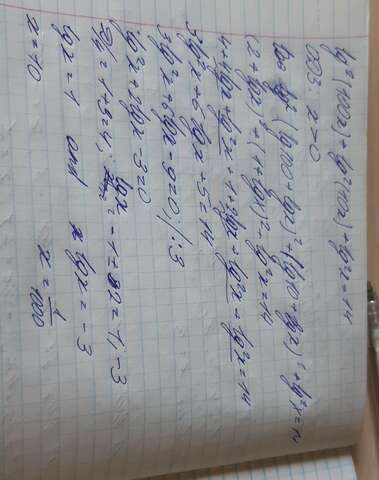 lg²(100x) + lg²(10x) + lg²x = 14
ОДЗ: x>0
(lg100 + lgx)² + (lg10 + lgx)² + lg²x = 14
(2 + lgx)² + (1 + lgx)² + lg²x = 14
4 + 4lgx + lg²x + 1 + 2lgx + lg²x + lg²x = 14
3lg²x + 6lgx + 5 = 14
3lg²x + 6lgx - 9 = 0 /:3
lg²x + 2lgx - 3 = 0
D/4 = 1+3=4, lgx = -1±2 = 1; -3
lgx = 1 and lgx = -3
x = 10 x = 1/1000